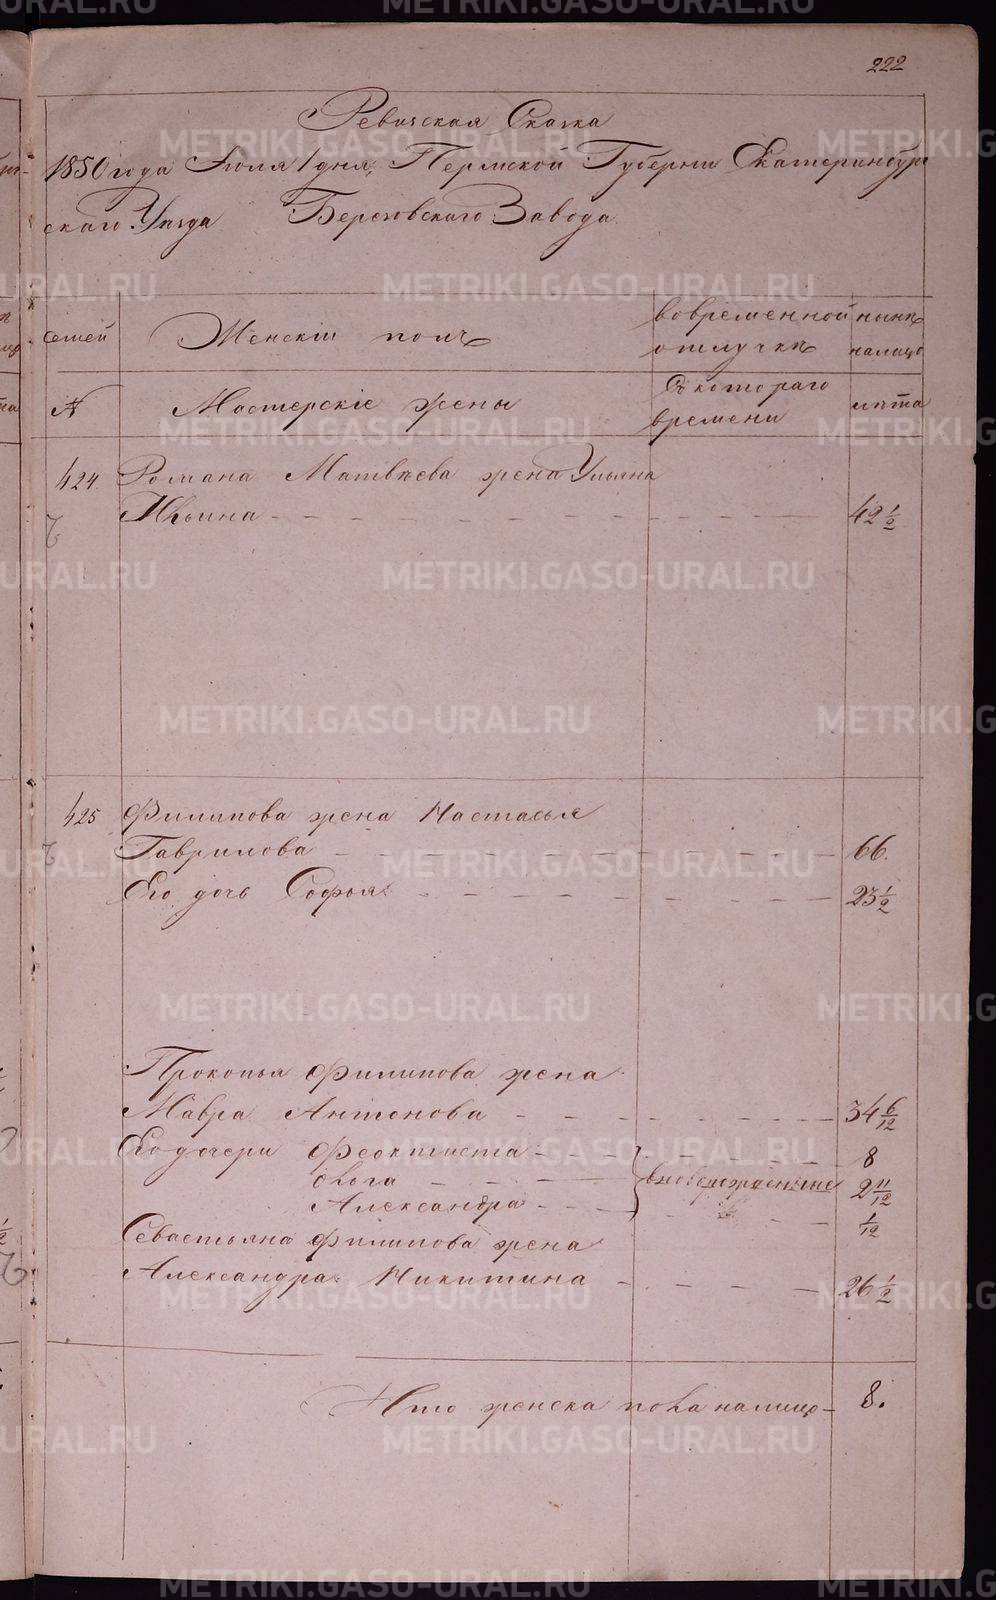 222
Ревизская Сказка
1850 года Июля 1 дня, Пермской Губернии Екатеринбург
скаго Уѣзда Березовскаго Завода
семей Женскій полъ во временной отлучкѣ нынѣ налицо
№ Мастерскіе жены Съ котораго времени лѣта
424. Романа Матвѣева жена Ульяна
Ильина 42 1/2
425 Филипова жена Настасья
Гаврилова 66.
Его дочь Софья 23 1/2
Прокопья Филипова жена
Мавра Антонова 34 6/12
Его дочери Феоктиста 8
Ольга вновьрожденные 2 11/12
Александра 1/12
Севастьяна Филипова жена
Александра Никитина 26 1/2
Итого женска пола налицо 8.
METRIKI.GASO-URAL.RU